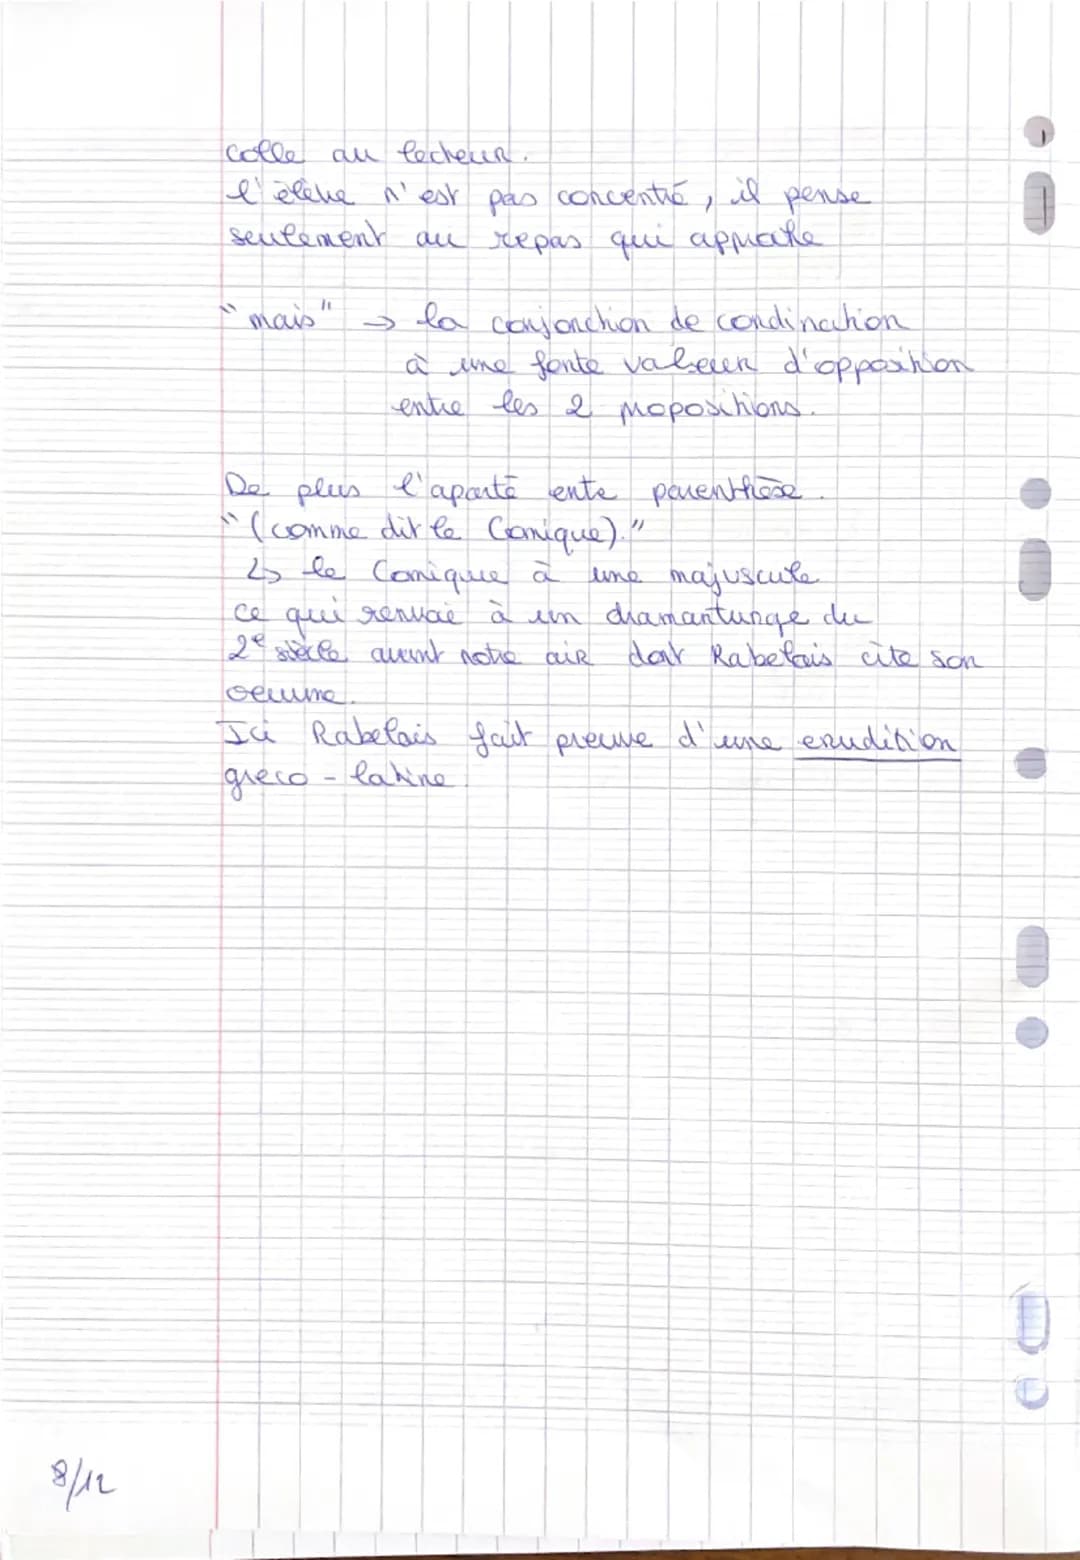 colle au lecheur.
l'élève n'est pas concentré, il pense
seulement au repas qui approche
"mais" → la conjonction de condination
à une forte valeur d'opposition
entre les 2 propositions.
De plus l'aparté ente parenthèse.
"(comme dit le Comique)."
↳ le Comique à une majuscule
ce qui renvoie à un dramanturge du
2e siècle avant notre air dont Rabelais cite son
oeuvre.
Ici Rabelais fait preuve d'une erudition
greco-latine.
8/12